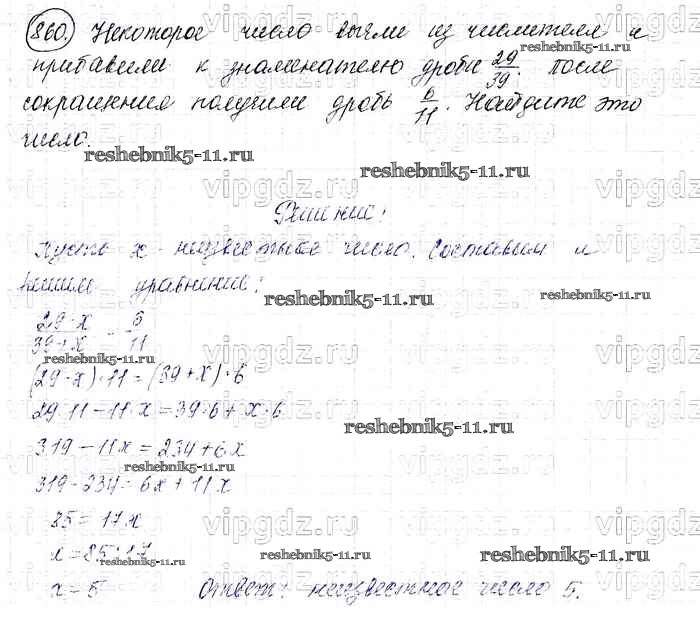 860. Некоторое число вычли из числителя и
прибавили к знаменателю дроби 29/39. После
сокращения получили дробь 6/11. Найдите это
число.
reshebnik5-11.ru
reshebnik5-11.ru
Решение:
Пусть x - неизвестное число. Составим и
решим уравнение:
reshebnik5-11.ru
reshebnik5-11.ru
(29-x)/(39+x) = 6/11
reshebnik5-11.ru
(29-x)·11=(39+x)·6
29·11-11·x=39·6+x·6
reshebnik5-11.ru
319-11x=234+6x
reshebnik5-11.ru
319-234=6x+11x
85=17x
x=85:17
reshebnik5-11.ru
reshebnik5-11.ru
reshebnik5-11.ru
x=5 Ответ: неизвестное число 5.
vipgdz.ru